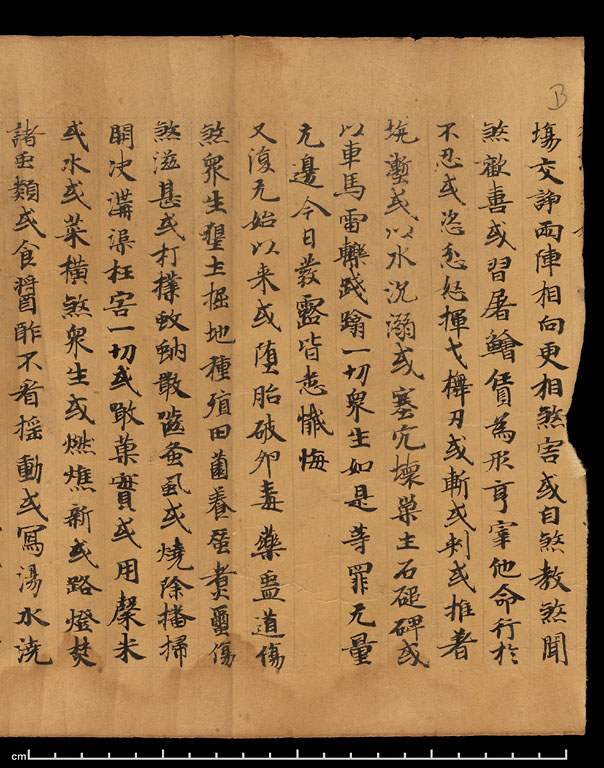 B
塲交諍兩陣相向更相煞害或自煞教煞聞
煞歡喜或習屠鱠債為形烹宰他命行於
不忍或恣忿怒揮戈儛刀或斬或刺或推著
坑壍或以水沉溺或塞穴壞巢土石磓碑或
以車馬雷轢踐蹋一切衆生如是等罪无量
无邊今日發露皆悉懺悔
又復无始以来或墮胎破卵毒藥蠱道傷
煞衆生墾土掘地種殖田園養蚕煮蠒傷
煞滋甚或打撲蚊蚋敢齧蚤虱或燒除播掃
開决溝渠枉害一切或敢菓實或用糓米
或水或菜橫煞衆生或燃燋新或路燈焚
諸虫類或食醬酢不看揺動或寫湯水澆